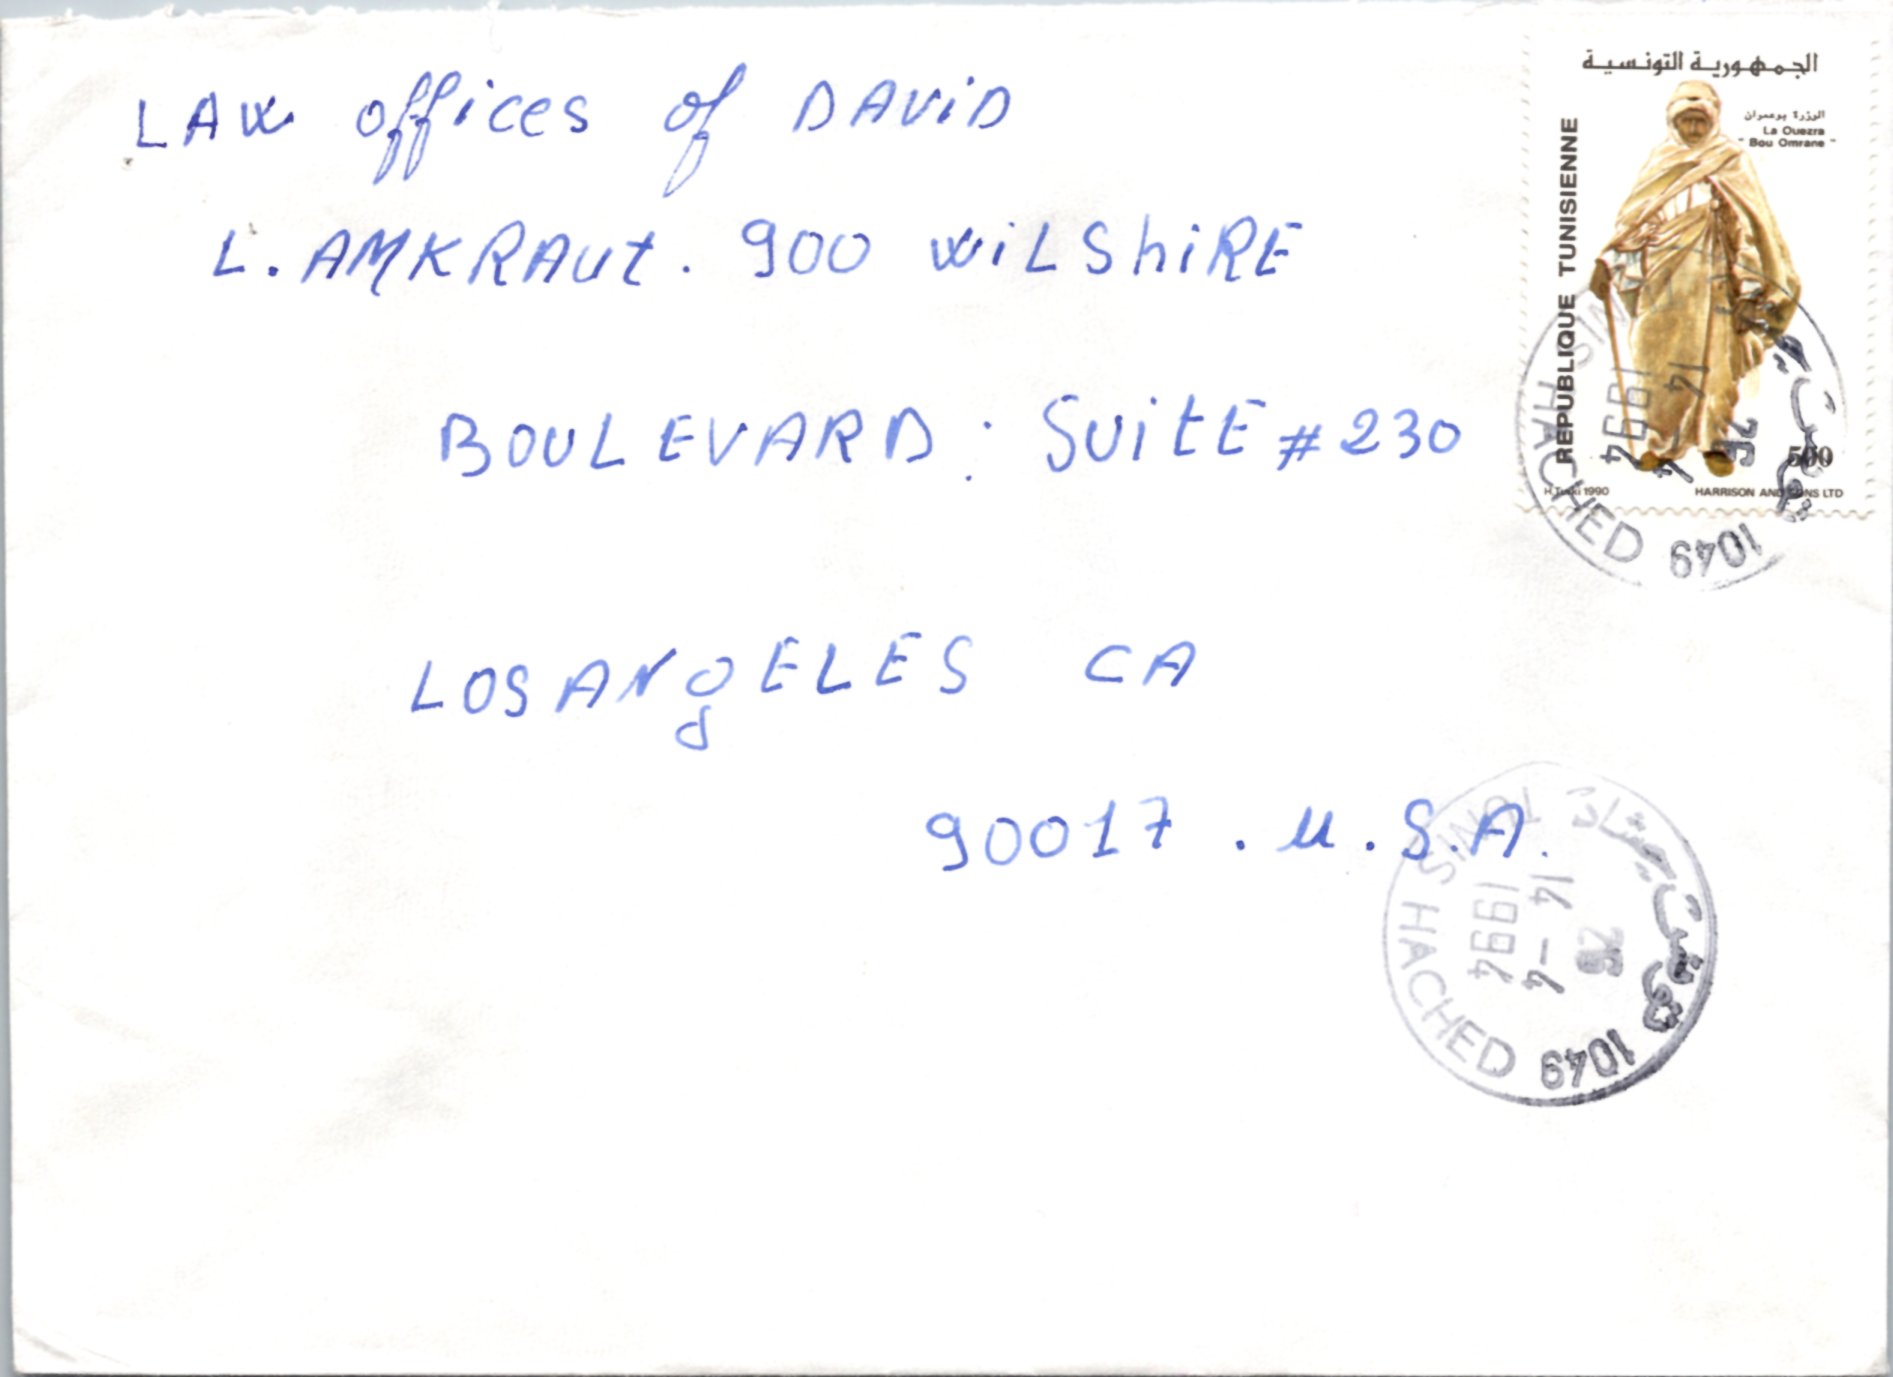 LAW offices of DAViD
L. AMKRAUt. 900 WiLShiRE
BOULEVARD : SUitE # 230
LOSANgELES CA
90017 . U.S.A.
الجمهورية التونسية
الوزرة بوعمران
La Ouezra
" Bou Omrane "
REPUBLIQUE TUNISIENNE
500
H.Turki 1990
HARRISON AND SONS LTD
TUNIS HACHED 1049
14 - 4
1994
26
TUNIS HACHED 1049
تونس حشاد
14 - 4
1994
26